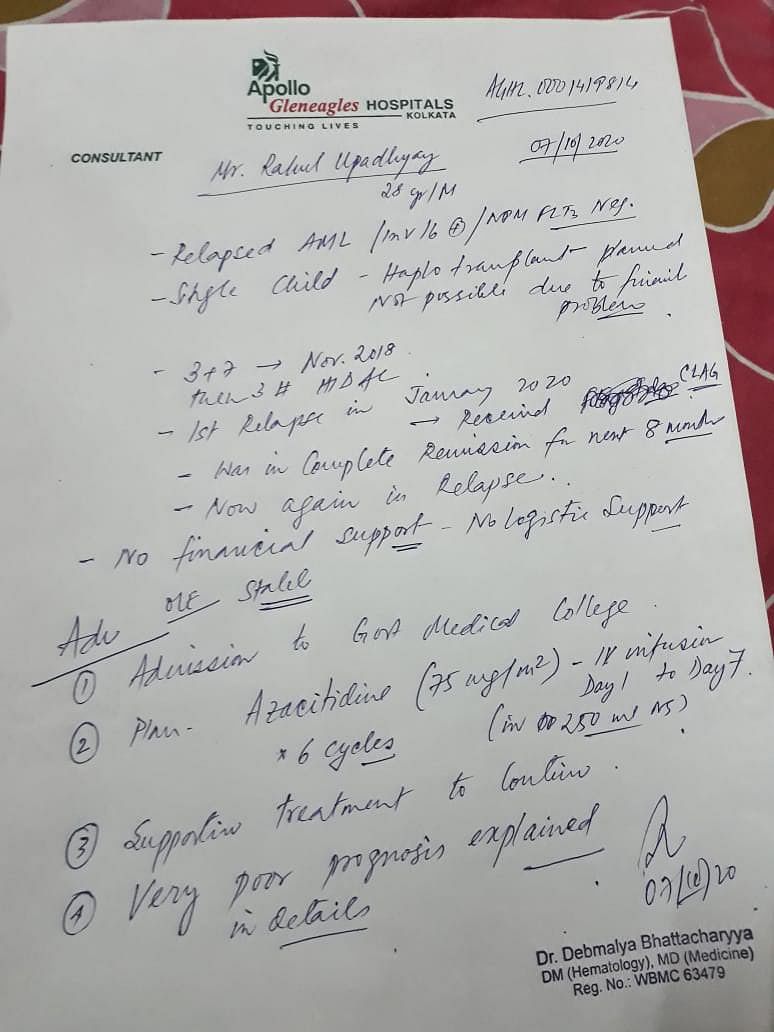 Apollo
Gleneagles HOSPITALS
KOLKATA
TOUCHING LIVES
AGHL.0001419814
CONSULTANT
07/10/2020
Mr. Rahul Upadhyay
28 yr/M
- Relapsed AML / Inv 16 ⊕ / NPM FLT3 Neg.
- Single Child - Haplo transplant planned
Not possible due to
problem
- 3+7 → Nov. 2018
then 3 # HIDAC
- 1st Relapse in January 2020
→ Received CLAG
- Was in Complete Remission for next 8 month
- Now again in Relapse..
- No financial support - No logistic support
O/E Stable
Adv
① Admission to Govt Medical College.
② Plan - Azacitidine (75 mg/m²) - IV infusion
Day 1 to Day 7.
* 6 cycles (in 250 ml NS)
③ Supportive treatment to continue.
④ Very poor prognosis explained
in details
07/10/20
Dr. Debmalya Bhattacharyya
DM (Hematology), MD (Medicine)
Reg. No.: WBMC 63479